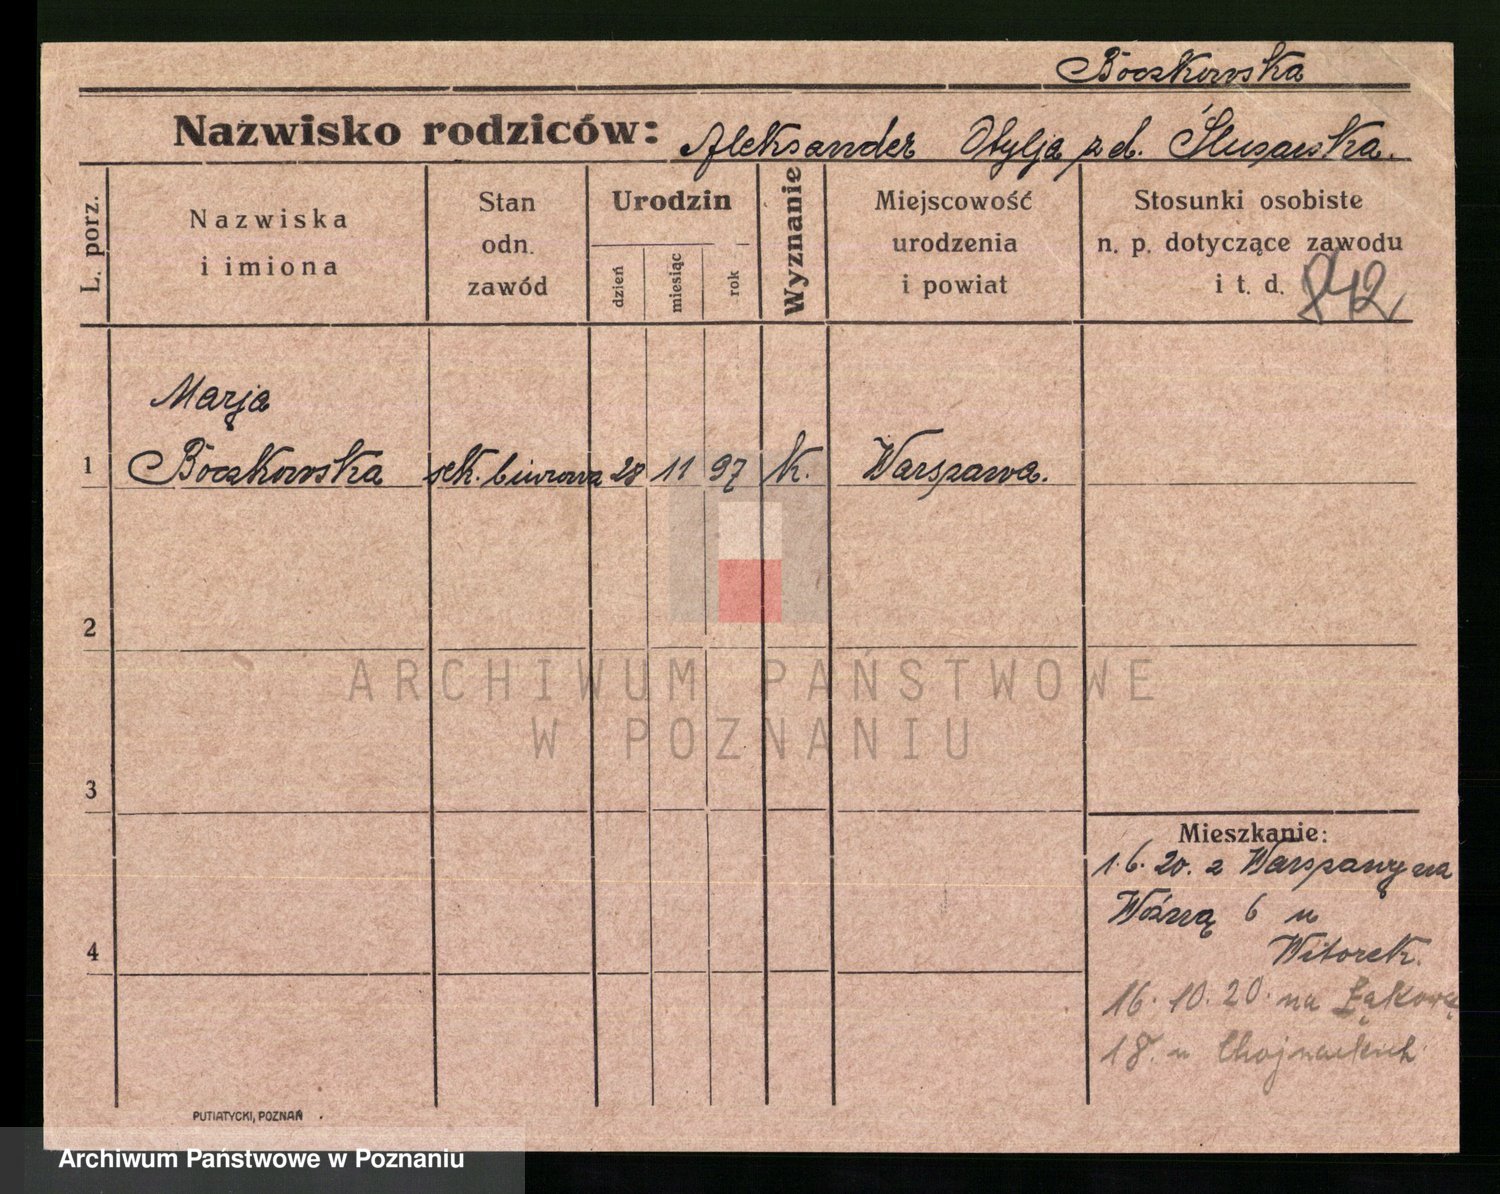 Boczkowska
Nazwisko rodziców: Aleksander Otylja z d. Ślusarska.
L. porz.
Nazwiska
i imiona
Stan
odn.
zawód
Urodzin
dzień
miesiąc
rok
Wyznanie
Miejscowość
urodzenia
i powiat
Stosunki osobiste
n. p. dotyczące zawodu
i t. d. 842
Marja
1 Boczkowska sek. biurowa 28 11 97 k. Warszawa.
2
ARCHIWUM PAŃSTWOWE
W POZNANIU
3
Mieszkanie:
1. 6. 20. z Warszawy na
Woźną 6 u
4
Witorek.
16. 10. 20. na Łąkową
18. u Chojnackich
PUTIATYCKI, POZNAŃ
Archiwum Państwowe w Poznaniu